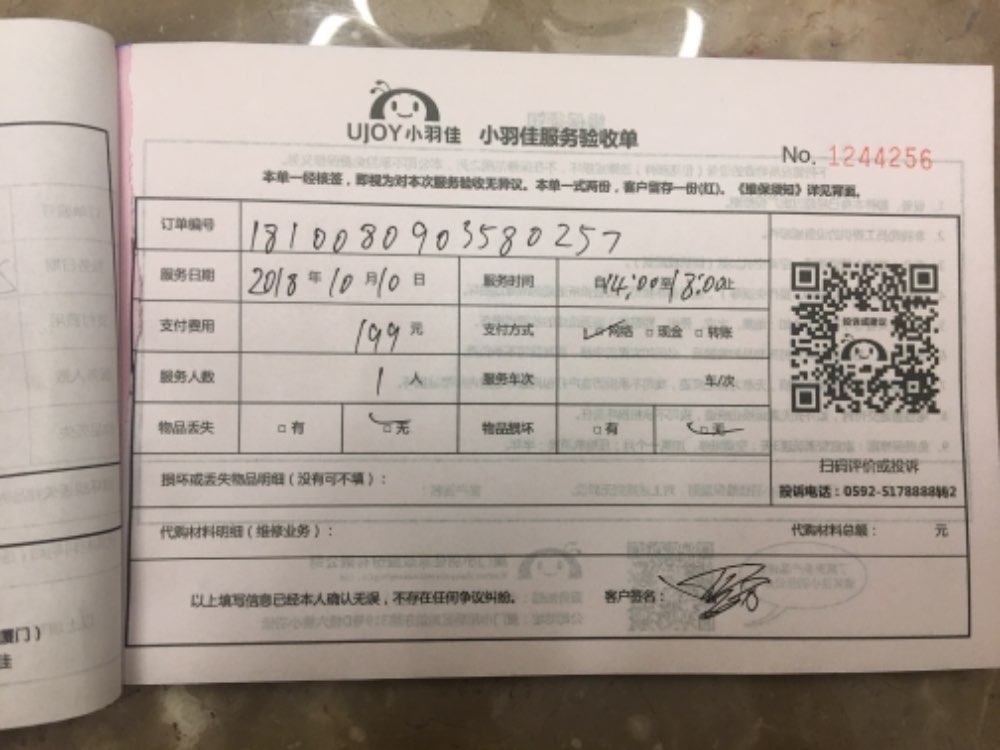 UJOY小羽佳 小羽佳服务验收单
No. 1244256
本单一经接签，即视为对本次服务验收无异议。本单一式两份，客户留存一份(红)。《维保须知》详见背面。
订单编号 1810080903580257
服务日期 2018年10月10日 服务时间 自14:00至18:00止
支付费用 199元 支付方式 ☑网络 □现金 □转账
服务人数 1人 服务车次 车/次
物品丢失 □有 ☑无 物品损坏 □有 ☑无
投诉或建议
扫码评价或投诉
投诉电话：0592-5178888转2
损坏或丢失物品明细（没有可不填）：
代购材料明细（维修业务）： 代购材料总额： 元
以上填写信息已经本人确认无误，不存在任何争议纠纷。 客户签名：
厦门）
佳